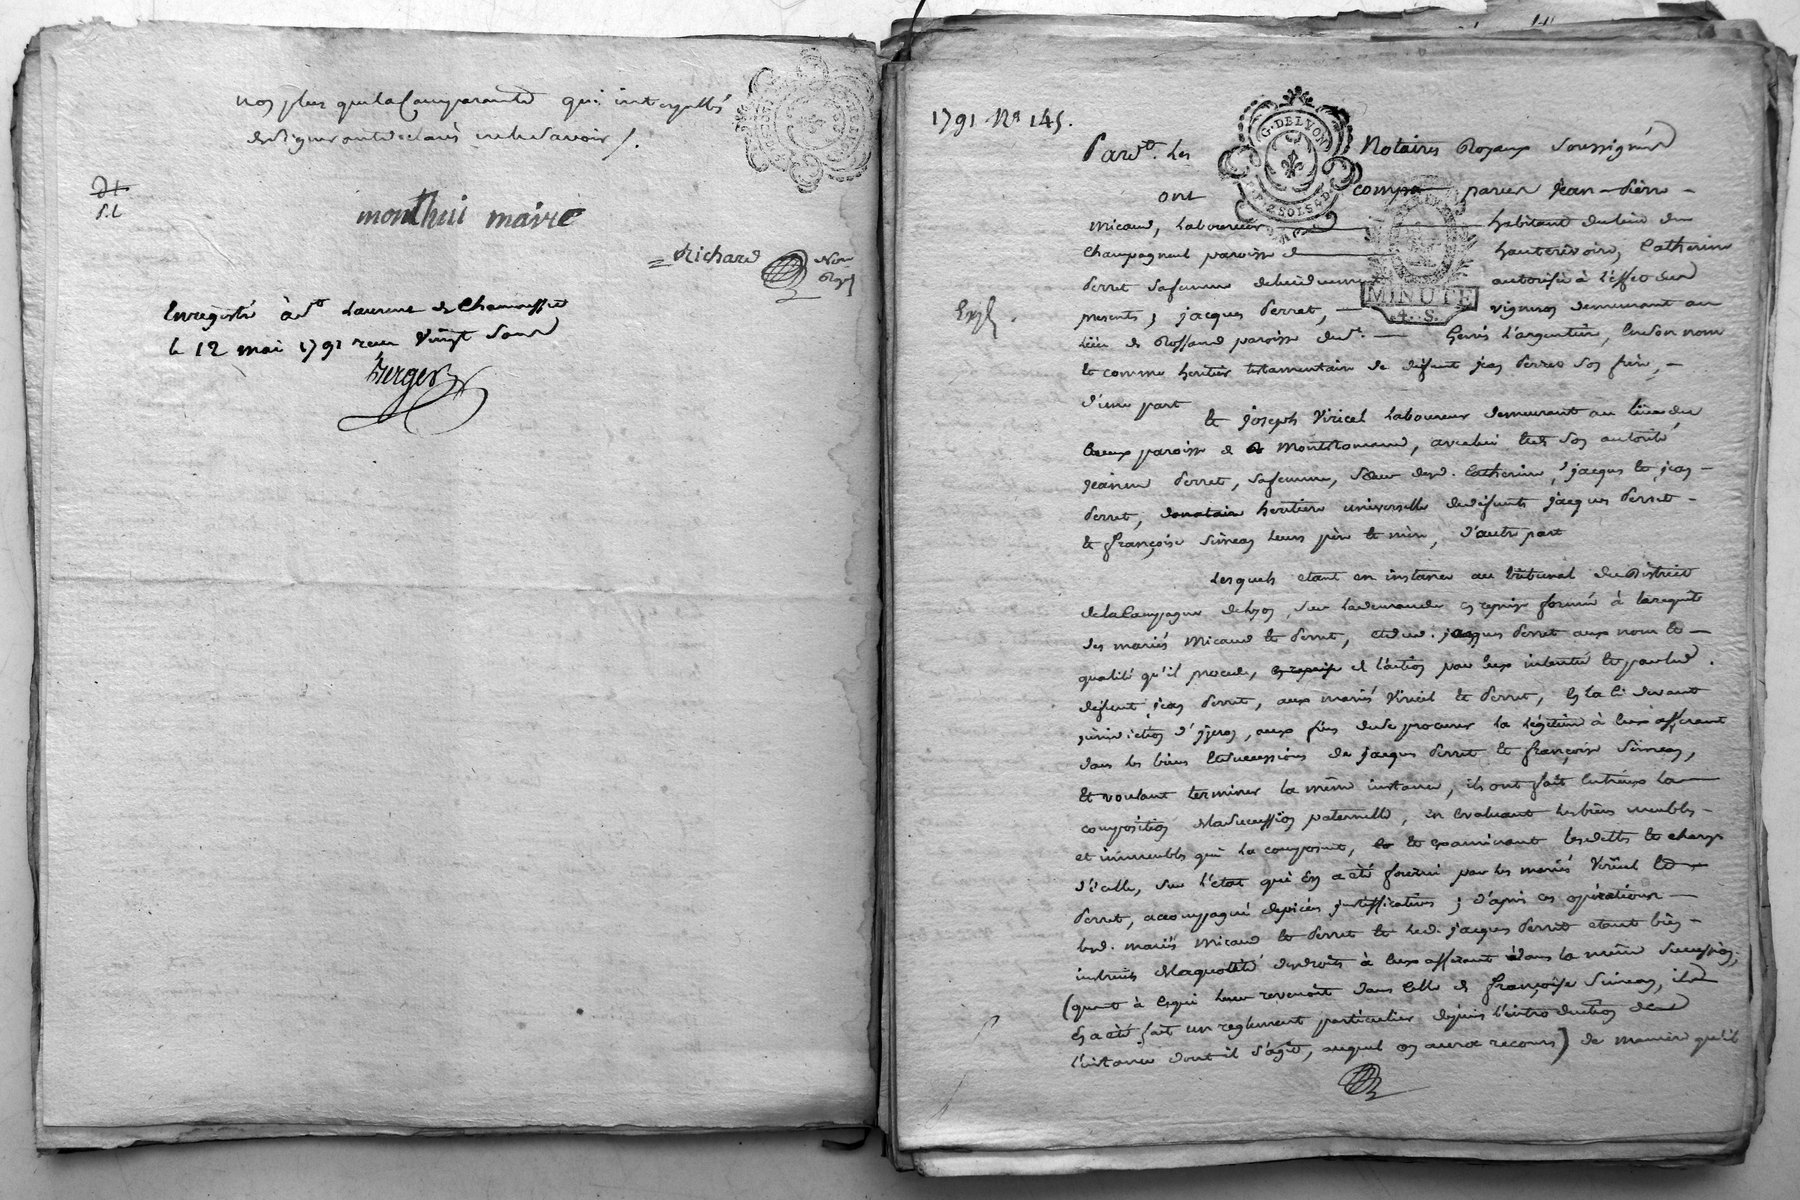 non plus que la Comparante qui interpellés
de signer ont déclaré ne le savoir /.
monthui maire
= Richard Not. Royal
Enregistré à St Laurent de Chamousset
le 12 mai 1791 reçu Vingt Sous
Berger
1791 No 145.
G. DE LYON
F. P. 2 SOLS 4 D
MINUTE
4. S.
Pardt. Les Notaires Royaux Soussignés
ont comparu Jean-Pierre
Micaud, Laboureur habitant du lieu de
Champagneul paroisse d hauterivoire, Catherine
Perret sa femme de lui duement autorisée à l'effet des
presents, jacques Perret, vigneron demeurant au
Expé.
lieu de Rossand paroisse de St. Genis L'argentiere, en son nom
et comme heritier testamentaire de défunt jean Perret son frère,
d'une part et joseph Viricel Laboureur demeurant au lieu du
paroisse de Montromand, avec lui et de son autorité
jeanne Perret, sa femme, Soeur desd. Catherine, jacques et jean
Perret, donataire heritiere universelle de défunts jacques Perret
et françoise Simeon leurs père et mère, d'autre part
Lesquels etant en instance au tribunal du District
de la Campagne de Lyon, sur la demande en reprise formée à la requête
des mariés Micaud et Perret, et dud. jacques Perret aux noms et
qualité qu'il procede, en reprise de l'action par eux intentée et par led.
défunt jean Perret, aux mariés Viricel et Perret, en la ci devant
jurisdiction d'yzeron, aux fins de se procurer la légitime à eux afferant
dans les biens et successions de jacques Perret et françoise Simeon,
et voulant terminer la même instance, ils ont fait entr'eux la
composition de la Succession paternelle, en evaluant les biens meubles
et immeubles qui la composent, et examinant les dettes et charges
d'icelle, sur l'état qui en a été fourni par les mariés Viricel et
Perret, accompagné de pièces justificatives; d'après ces opérations
lesd. mariés Micaud et Perret et led. jacques Perret etant bien
instruits de la quotité des droits à eux afferant dans la même Succession,
(quant à ce qui leur revenoit dans celle de françoise Simeon, il
en a été fait un reglement particulier depuis l'introduction de
l'instance dont il s'agit, auquel on aura recours) de maniere qu'il